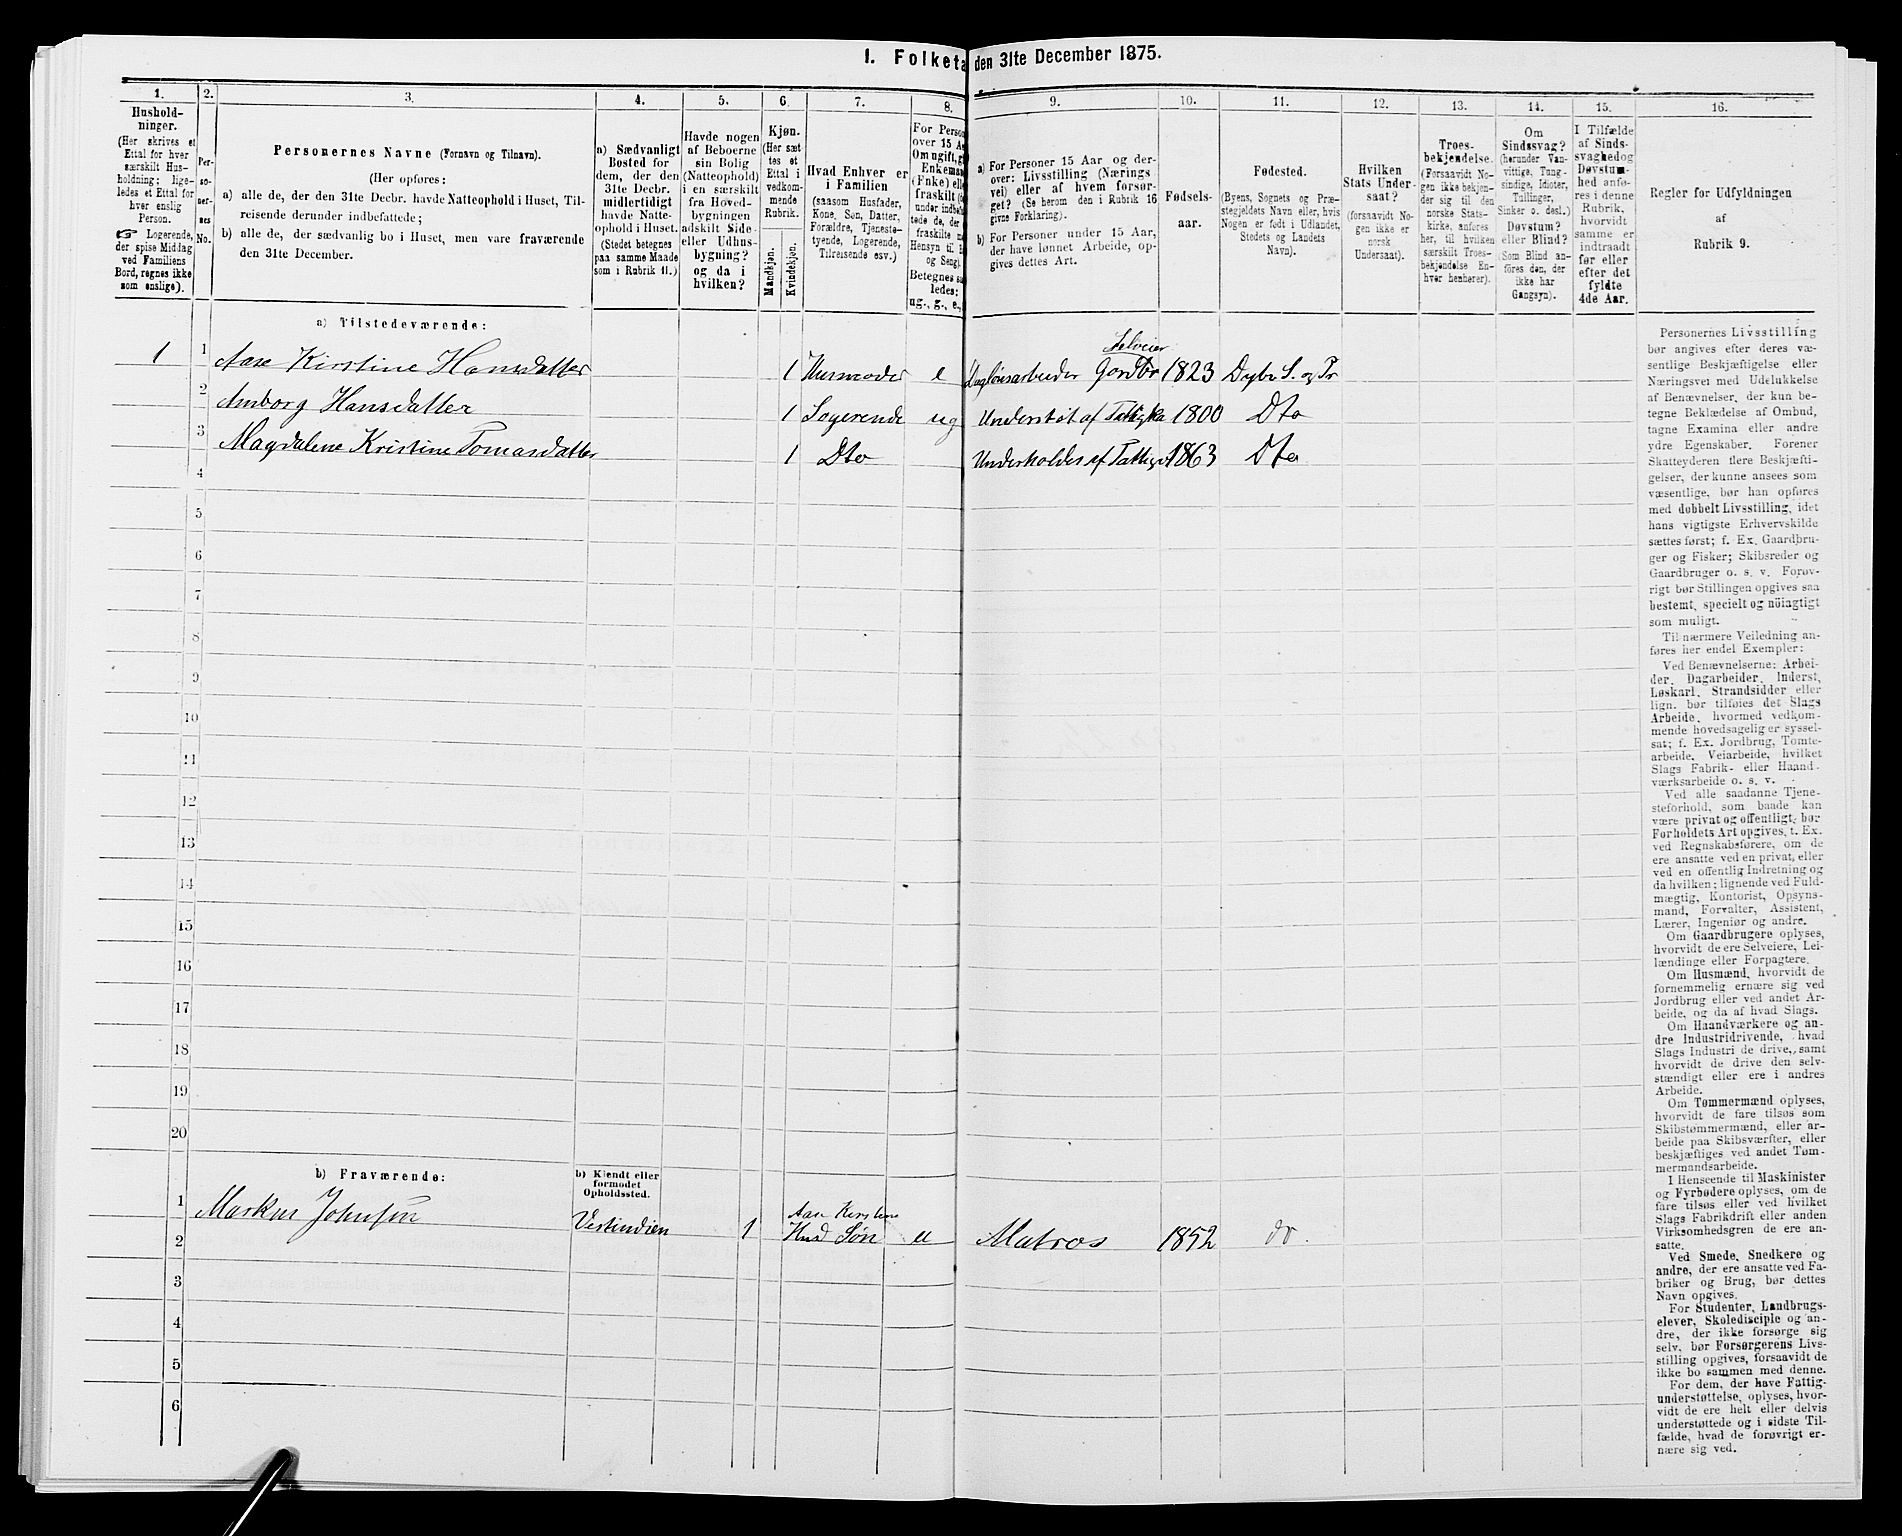 I. Folketa
den 31te December 1875.
1.
2.
3.
4.
5.
6.
7.
8.
9.
10.
11.
12.
13.
14.
15.
16.
Hushold-
ninger.
(Her skrives et
Ettal for hver
særskilt Hus-
holdning; lige-
ledes et Ettal for
hver enslig
Person.
Logerende,
der spise Middag
ved Familiens
Bord, regnes ikke
som enslige).
Per-
so-
ner-
nes
No.
Personernes Navne (Fornavn og Tilnavn).
(Her opføres:
a) alle de, der den 31te Decbr. havde Natteophold i Huset, Til-
reisende derunder indbefattede;
b) alle de, der sædvanlig bo i Huset, men vare fraværende
den 31te December.
a) Sædvanligt
Bosted for
dem, der den
31te Decbr.
midlertidigt
havde Natte-
ophold i Huset.
(Stedet betegnes
paa samme Maade
som i Rubrik 11.)
Havde nogen
af Beboerne
sin Bolig
(Natteophold)
i en særskilt
fra Hoved-
bygningen
adskilt Side-
eller Udhus-
bygning?
og da i
hvilken?
Kjøn.
(Her sæt
tes et
Ettal i
vedkom-
mende
Rubrik.
Mandkjøn.
Kvindekjøn.
Hvad Enhver er
i Familien
(saasom Husfader,
Kone, Søn, Datter,
Forældre, Tjeneste-
tyende, Logerende,
Tilreisende osv.)
For Perso
over 15 A
Om ugift, g
Enkema
(Enke) el
fraskilt (
under indbef
tede de, der
fraskilte
Hensyn til
og Seng).
Betegnes sa
ledes:
ug., g., e.,
a) For Personer 15 Aar og der-
over: Livsstilling (Nærings
vei) eller af hvem forsør-
get? (Se herom den i Rubrik 16
givne Forklaring).
b) For Personer under 15 Aar,
der have lønnet Arbeide, op-
gives dettes Art.
Fødsels-
aar.
Fødested.
(Byens, Sognets og Præ-
stegjeldets Navn eller, hvis
Nogen er født i Udlandet,
Stedets og Landets
Navn).
Hvilken
Stats Under-
saat?
(forsaavidt No-
gen ikke er
norsk
Undersaat).
Troes-
bekjendelse.
(Forsaavidt No-
gen ikke bekjen-
der sig til den
norske Stats-
kirke, anføres
her, til hvilken
særskilt Troes-
bekjendelse En-
hver henhører).
Om
Sindssvag?
(herunder Van-
vittige, Tung-
sindige, Idioter,
Tullinger,
Sinker o. desl.)
Døvstum?
eller Blind?
(Som Blind an-
føres den, der
ikke har
Gangsyn).
I Tilfælde
af Sinds-
svaghed og
Døvstum-
hed anfø-
res i denne
Rubrik,
hvorvidt
samme er
indtraadt
før eller
efter det
fyldte
4de Aar.
Regler for Udfyldningen
af
Rubrik 9.
a) Tilstedeværende:
Selveier
1 1 Aase Kirstine Hansdatter 1 Husmoder e Daglønsarbeider Gardbr 1823 Dybv S. og Pr
2 Amborg Hansdatter 1 Logerende ug Understøt af Fattigka 1800 Dto
3 Magdalene Kristine Tomasdatter 1 Dto Underholdes af Fattigv 1863 Dto
4
5
6
7
8
9
10
11
12
13
14
15
16
17
18
19
20
b) Fraværende:
b) Kjendt eller
formodet
Opholdssted.
1 Markus Johnsen Vestindien 1 Aase Kirstine
Hnsd Søn u Matros 1852 do.
2
3
4
5
6
Personernes Livsstilling
bør angives efter deres væ-
sentlige Beskjæftigelse eller
Næringsvei med Udelukkelse
af Benævnelser, der kun be-
tegne Beklædelse af Ombud,
tagne Examina eller andre
ydre Egenskaber. Forener
Skatteyderen flere Beskjæfti-
gelser, der kunne ansees som
væsentlige, bør han opføres
med dobbelt Livsstilling, idet
hans vigtigste Erhvervskilde
sættes først; f. Ex. Gaardbru-
ger og Fisker; Skibsreder og
Gaardbruger o. s. v. Forøv-
rigt bør Stillingen opgives saa
bestemt, specielt og nöiagtigt
som muligt.
Til nærmere Veiledning an-
føres her endel Exempler:
Ved Benævnelserne: Arbei-
der, Dagarbeider, Inderst,
Løskarl, Strandsidder eller
lign. bør tilføies det Slags
Arbeide, hvormed vedkom-
mende hovedsagelig er syssel-
sat; f. Ex. Jordbrug, Tomte-
arbeide, Veiarbeide, hvilket
Slags Fabrik- eller Haand-
værksarbeide o. s. v.
Ved alle saadanne Tjene-
steforhold, som baade kan
være privat og offentligt, bør
Forholdets Art opgives, t. Ex.
ved Regnskabsførere, om de
ere ansatte ved en privat, eller
ved en offentlig Indretning og
da hvilken; lignende ved Fuld-
mægtig, Kontorist, Opsyns-
mand, Forvalter, Assistent,
Lærer, Ingeniør og andre.
Om Gaardbrugere oplyses,
hvorvidt de ere Selveiere, Lei-
lændinge eller Forpagtere.
Om Husmænd, hvorvidt de
fornemmelig ernære sig ved
Jordbrug eller ved andet Ar-
beide, og da af hvad Slags.
Om Haandværkere og an-
dre Industridrivende, hvad
Slags Industri de drive, samt
hvorvidt de drive den selv-
stændigt eller ere i andres
Arbeide.
Om Tømmermænd oplyses,
hvorvidt de fare tilsøs som
Skibstømmermænd, eller ar-
beide paa Skibsværfter, eller
beskjæftiges ved andet Tøm-
mermandsarbeide.
I Henseende til Maskinister
og Fyrbødere oplyses, om de
fare tilsøs eller ved hvilket
Slags Fabrikdrift eller anden
Virksomhedsgren de ere an-
satte.
Ved Smede, Snedkere og
andre, der ere ansatte ved Fa-
briker og Brug, bør dettes
Navn opgives.
For Studenter, Landbrugs-
elever, Skoledisciple og an-
dre, der ikke forsørge sig
selv, bør Forsørgerens Livs-
stilling opgives, forsaavidt de
ikke bo sammen med denne.
For dem, der have Fattig-
understøttelse, oplyses, hvor-
vidt de ere helt eller delvis
understøttede og i sidste Til-
fælde, hvad de forøvrigt er-
nære sig ved.